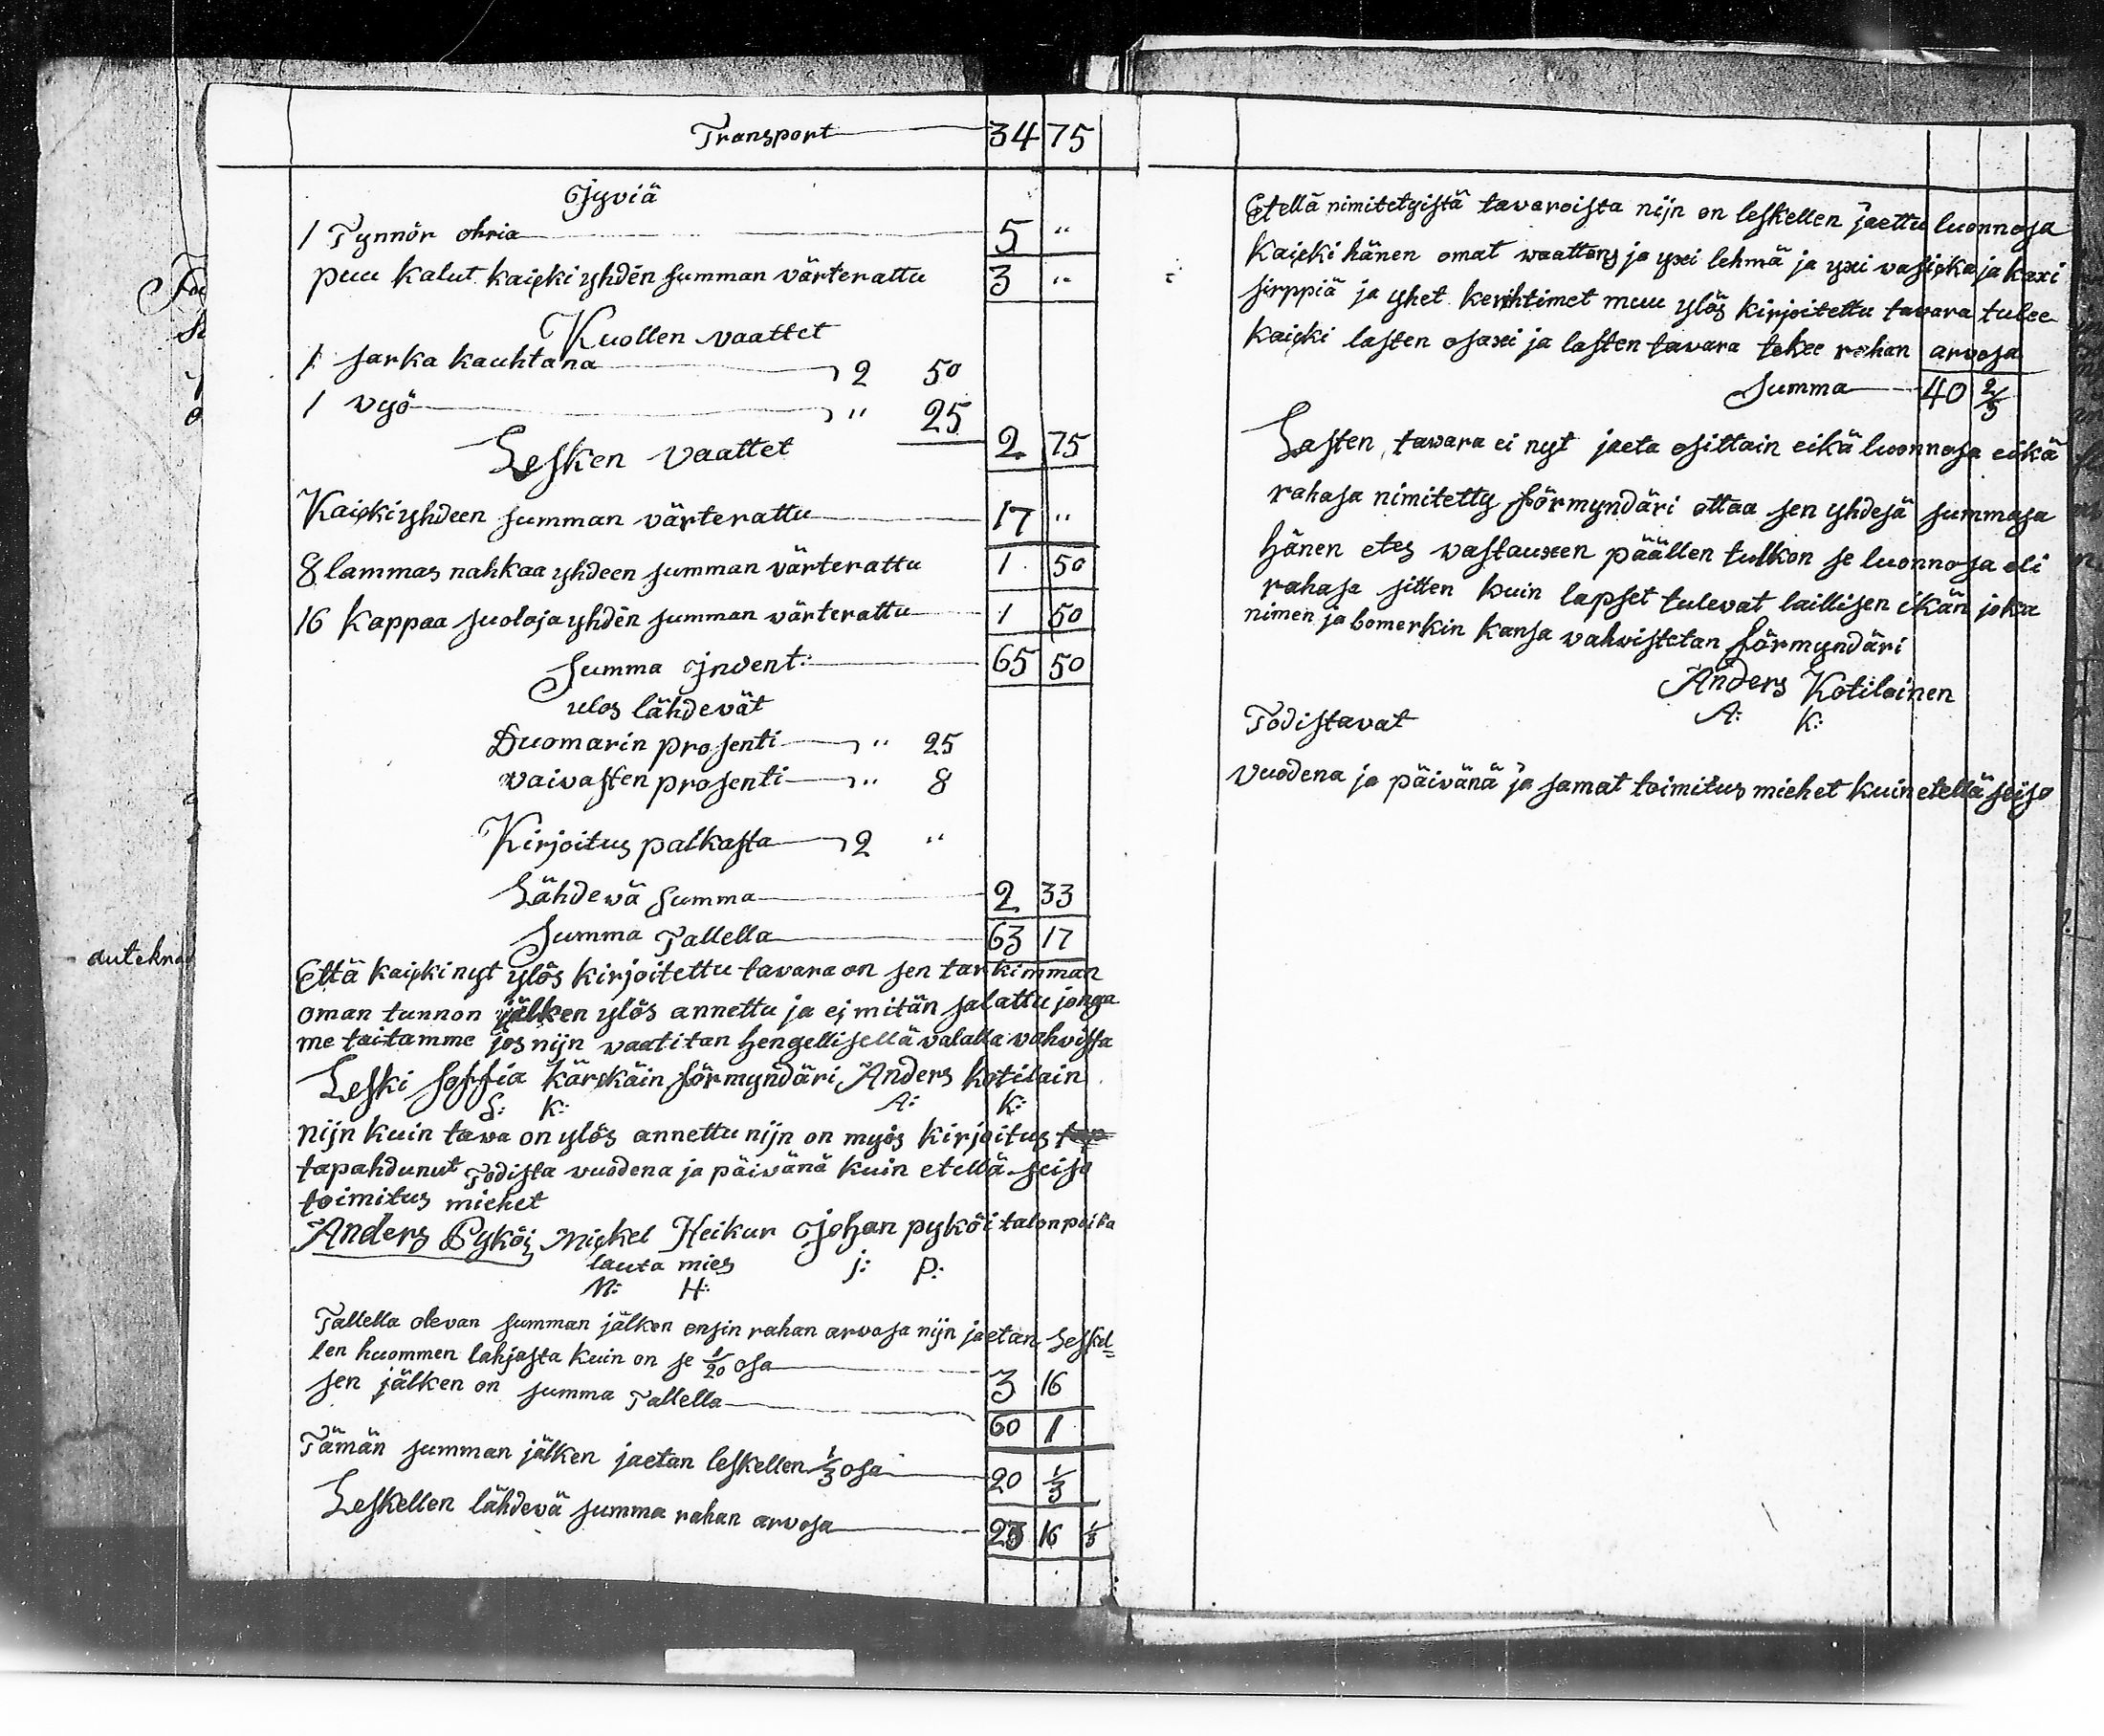 Transport 34 75
Jyviä
1 Tynnör ohria 5 "
puu kalut kaicki yhdēn summan värterattu 3 "
Kuollen vaattet
1 sarka kauhtana 2 50
1 vyö " 25
2 75
Lesken vaattet
Kaicki yhdeen summan värterattu 17 "
8 lammas nahkaa yhdeen summan värterattu 1 50
16 kappaa suoloja yhdēn summan värterattu 1 50
Summa Invent: 65 50
ulos lähdevät
Duomarin prosenti " 25
vaivasten prosenti " 8
Kirjoitus palkasta 2 "
Lähdewä summa 2 33
Summa Tallella 63 17
Että kaicki nyt ylös kirjoitettu tavara on sen tarkimman
oman tunnon jälken ylös annettu ja ej mitän salattu jonga
me taitamme jos nijn vaatitan hengellisellä valalla vahvista
Leski Soffia Kärckäin förmyndäri Anders kotilain
S: K: A: K:
nijn kuin tawa on ylös annettu nijn on myös kirjoitus
tapahdunut Todista vuodena ja päivänä kuin etellä seiso
toimitus miehet
Anders Pyköi Mickel Heikur Johan pyköi talonpoika
lauta mies j: P:
M: H:
Tallella olevan summan jälken ensin rahan arvosa nijn jaetan Leskel=
len huommen lahjasta kuin on se 1/20 osa 3 16
sen jälken on summa Tallella 60 1
Tämän summan jälken jaetan leskellen 1/3 osa 20 1/3
Leskellen lähdevä summa rahan arvosa 23 16 1/3
Etellä nimitetyistä tavaroista nijn on leskellen jaettu luonnosa
kaicki hänen omat waattens ja yxi lehmä ja yxi vasicka ja kaxi
sirppiä ja yhet kerihtimet muu ylös kirjoitettu tavara tulee
kaicki lasten osaxi ja lasten tavara tekee rahan arvosa
Summa 40 2/3
Lasten tawara ei nyt jaeta osittain eikä luonnosa eikä
rahasa nimitetty förmyndäri ottaa sen yhdesä summasa
hänen etes wastauxen päällen tulkon se luonnosa eli
rahasa sitten kuin lapset tulevat laillisen ikän joka
nimen ja bomerkin kansa vahwistetan förmyndäri
Anders Kotilainen
A: K:
Todistavat
vuodena ja päivänä ja samat toimitus miehet kuin etellä seiso